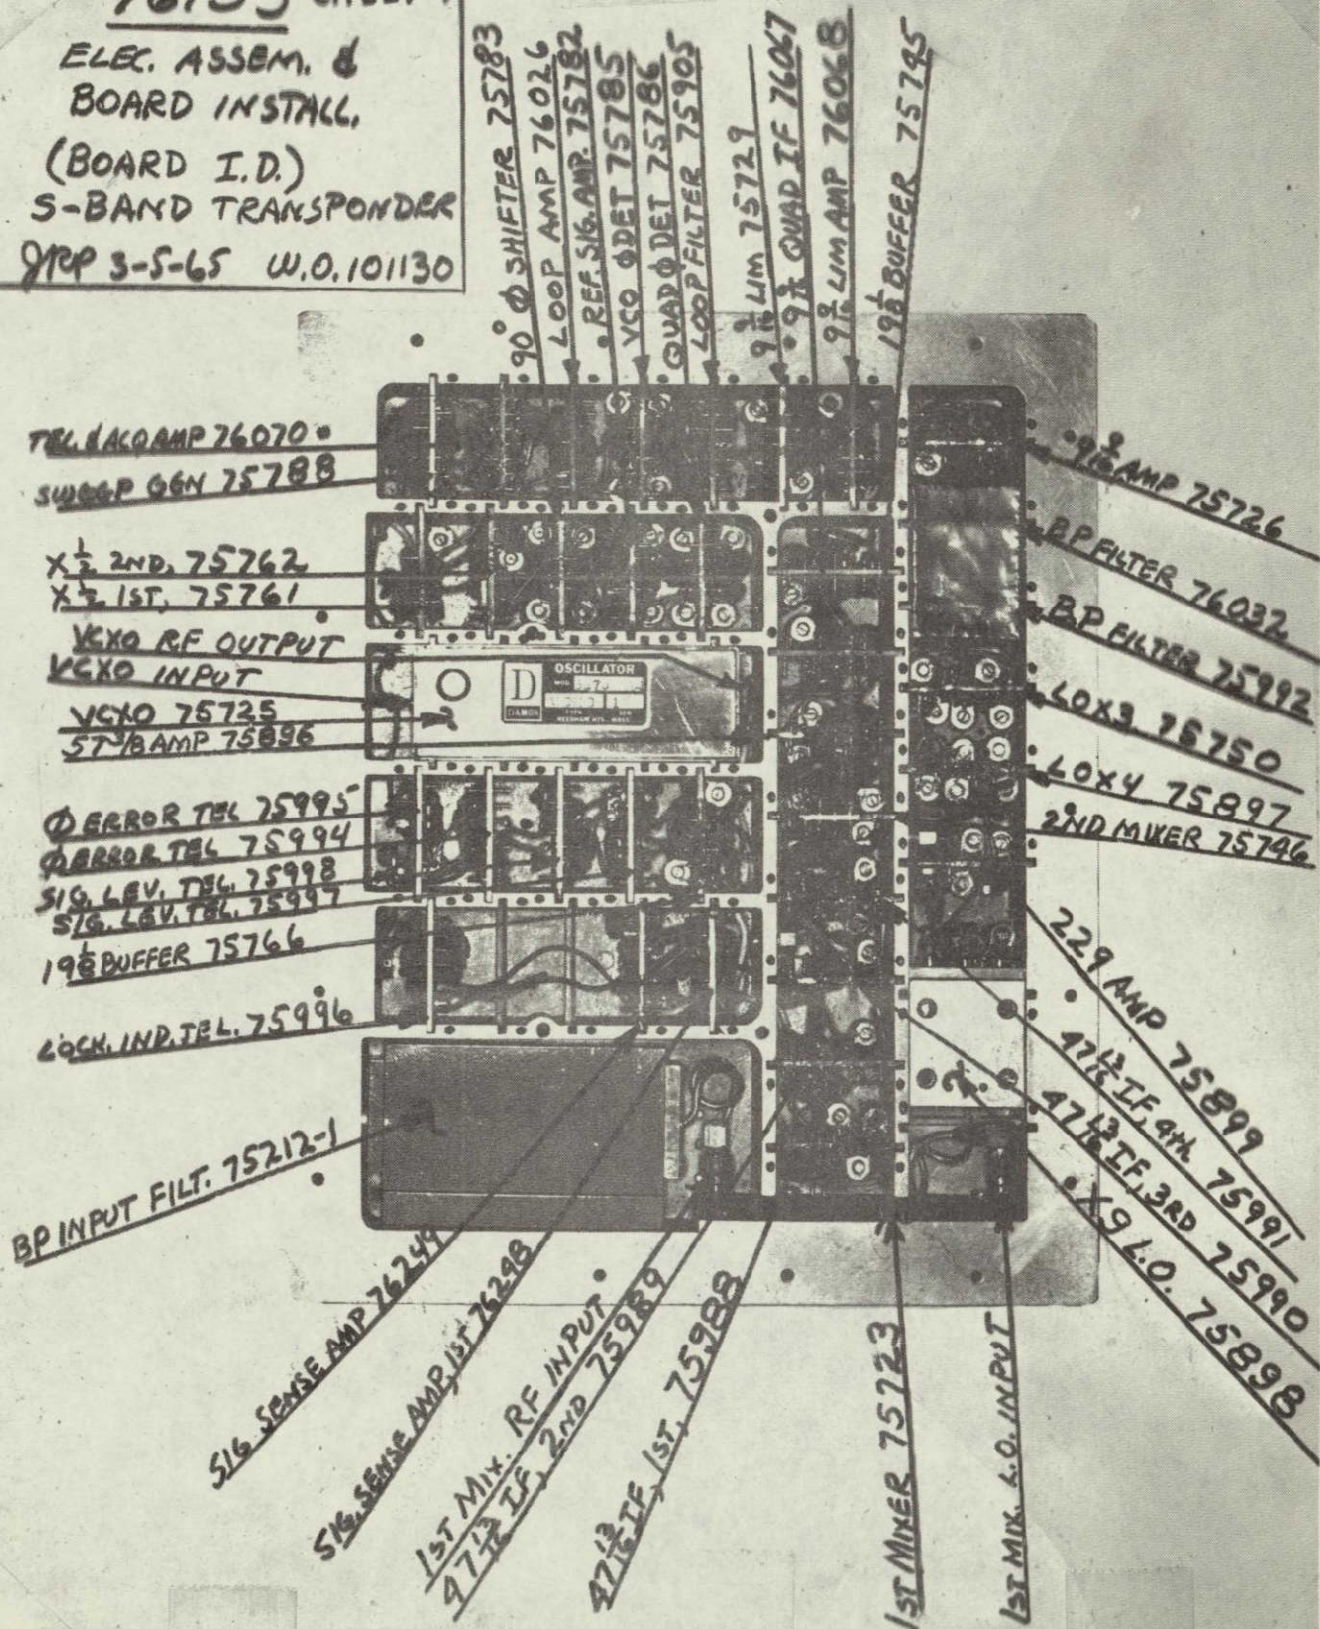 ELEC. ASSEM. &
BOARD INSTALL.
(BOARD I.D.)
S-BAND TRANSPONDER
JRP 3-5-65 W.O. 101130
90° Ø SHIFTER 75783
LOOP AMP 76026
REF. SIG. AMP. 75782
VCO ØDET 75785
QUAD Ø DET 75786
LOOP FILTER 75905
9 9/16 LIM 75729
9 9/16 QUAD IF 76067
9 9/16 LIM AMP 76068
19 1/8 BUFFER 75745
TEL. & ACQ AMP 76070
SWEEP GEN 75788
X 1/2 2ND, 75762
X 1/2 1ST, 75761
VCXO RF OUTPUT
VCXO INPUT
VCXO 75725
57 3/8 AMP 75896
Ø ERROR TEL 75995
Ø ERROR TEL 75994
SIG. LEV. TEL. 75998
SIG. LEV. TEL. 75997
19 1/8 BUFFER 75766
LOCK. IND. TEL. 75996
BP INPUT FILT. 75212-1
OSCILLATOR
D
DAMON
NEEDHAM HTS. MASS.
9 9/16 AMP 75726
BP FILTER 76032
BP FILTER 75992
LOX3 75750
LOX4 75897
2ND MIXER 75746
229 AMP 75899
47 13/16 IF, 4th 75991
47 13/16 IF, 3RD 75990
X9 L.O. 75898
SIG SENSE AMP 76249
SIG. SENSE AMP, 1ST 76248
1ST MIX. RF INPUT
47 13/16 IF, 2ND 75989
47 13/16 IF, 1ST, 75988
1ST MIXER 75723
1ST MIX. L.O. INPUT